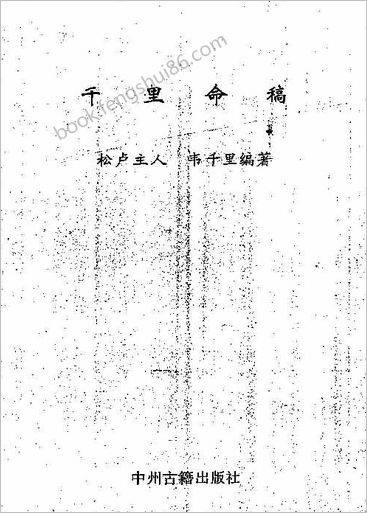 千里命稿
松卢主人 韦千里编著
中州古籍出版社
book.fengshui86.com